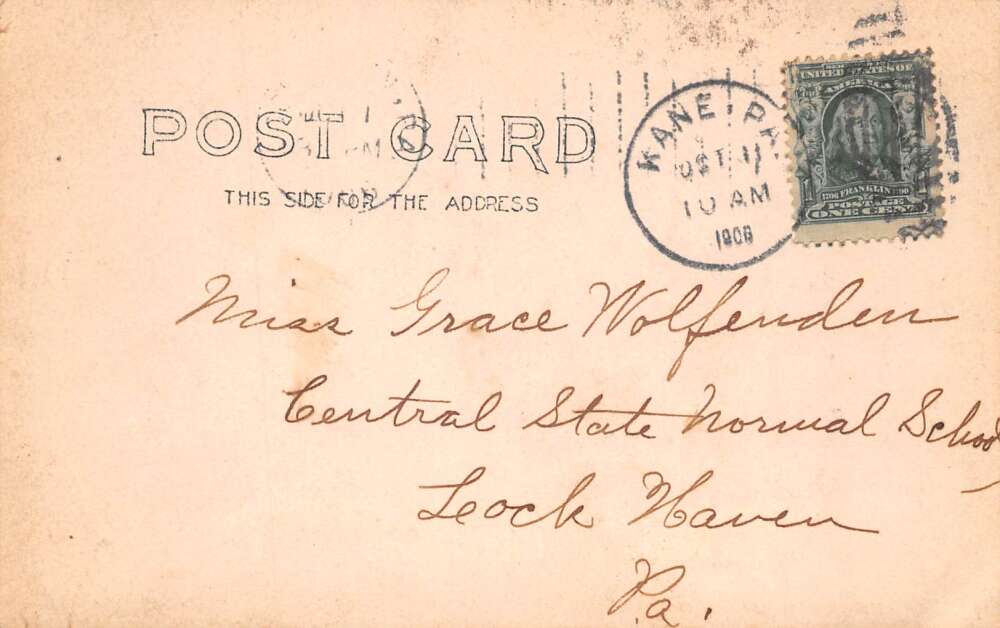 POST CARD
THIS SIDE FOR THE ADDRESS
KANE, PA.
OCT 11
10 AM
1906
UNITED STATES OF
AMERICA
1706 FRANKLIN 1790
POSTAGE
1 ONE CENT 1
Miss Grace Wolfenden
Central State Normal School
Lock Haven
Pa.